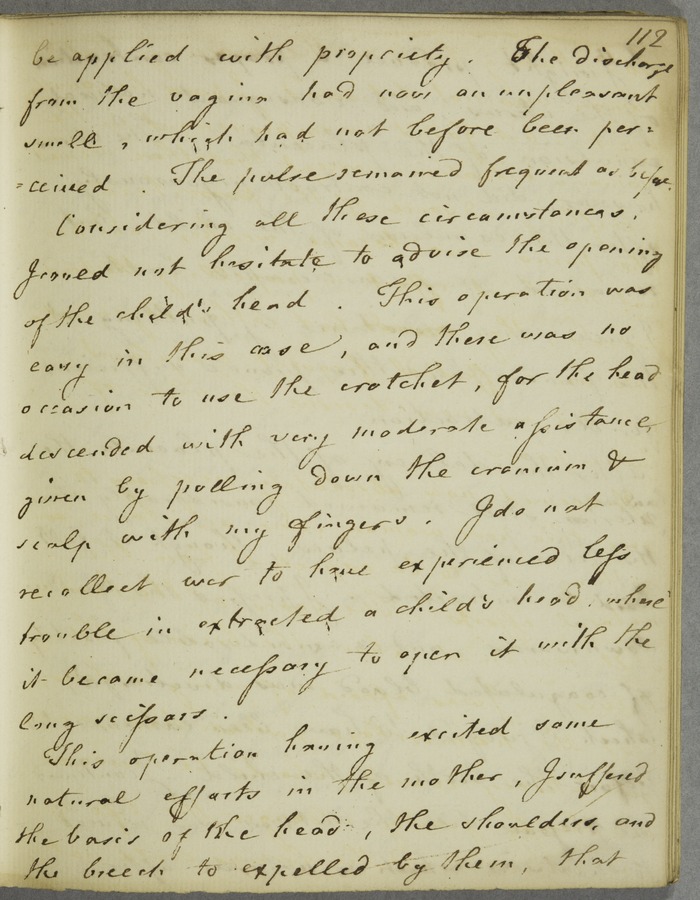 112
be applied with propriety. The discharge
from the vagina had now an unpleasant
smell, which had not before been per=
=ceived. The pulse remained frequent as before.
Considering all these circumstances,
I coued not hesitate to advise the opening
of the child's head. This operation was
easy in this case, and there was no
occasion to use the crotchet, for the head
descended with very moderate assistance
given by pulling down the cranium &
scalp with my fingers. I do not
recollect ever to have experienced less
trouble in extracted a child's head. where
it became necessary to open it with the
long scissars.
This operation having excited some
natural efforts in the mother, I suffered
the basis of the head, the shoulders, and
the breech to expelled by them, that